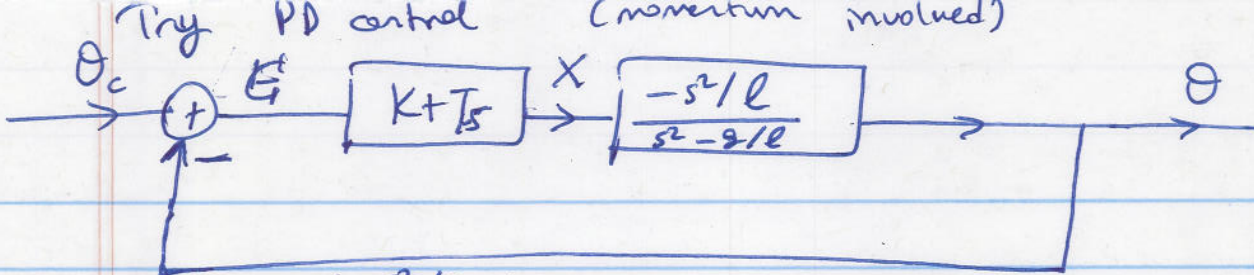 Try PD control (momentum involved)
θc + E K+Ts X -s²/l θ
s² - g/l
-